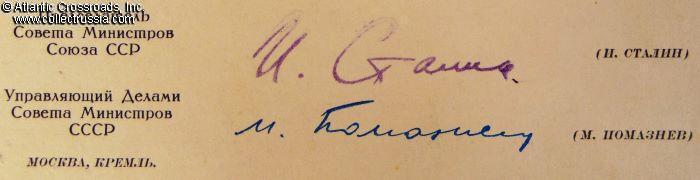 © Atlantic Crossroads, Inc.
www.collectrussia.com
Совета Министров
Союза ССР
И. Сталин
(И. СТАЛИН)
Управляющий Делами
Совета Министров
СССР
М. Помазнев
(М. ПОМАЗНЕВ)
МОСКВА, КРЕМЛЬ.